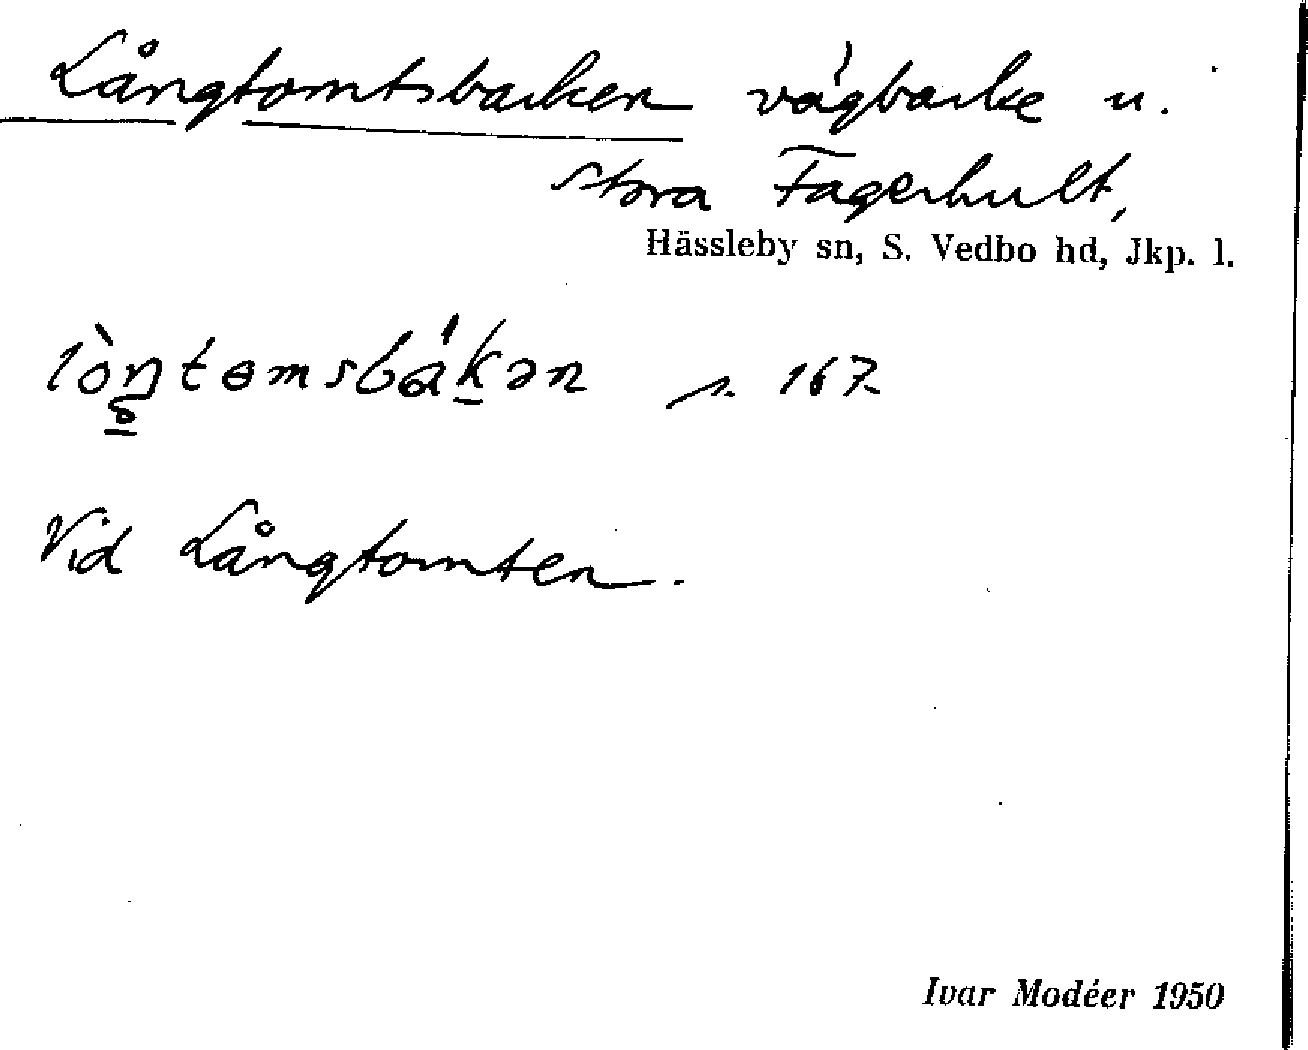 Långtomtsbacken vägbacke u.
Stora Fagerhult,
Hässleby sn, S. Vedbo hd, Jkp. l.
lòŋtɵmsbákən s. 167
Vid Långtomten.
Ivar Modéer 1950